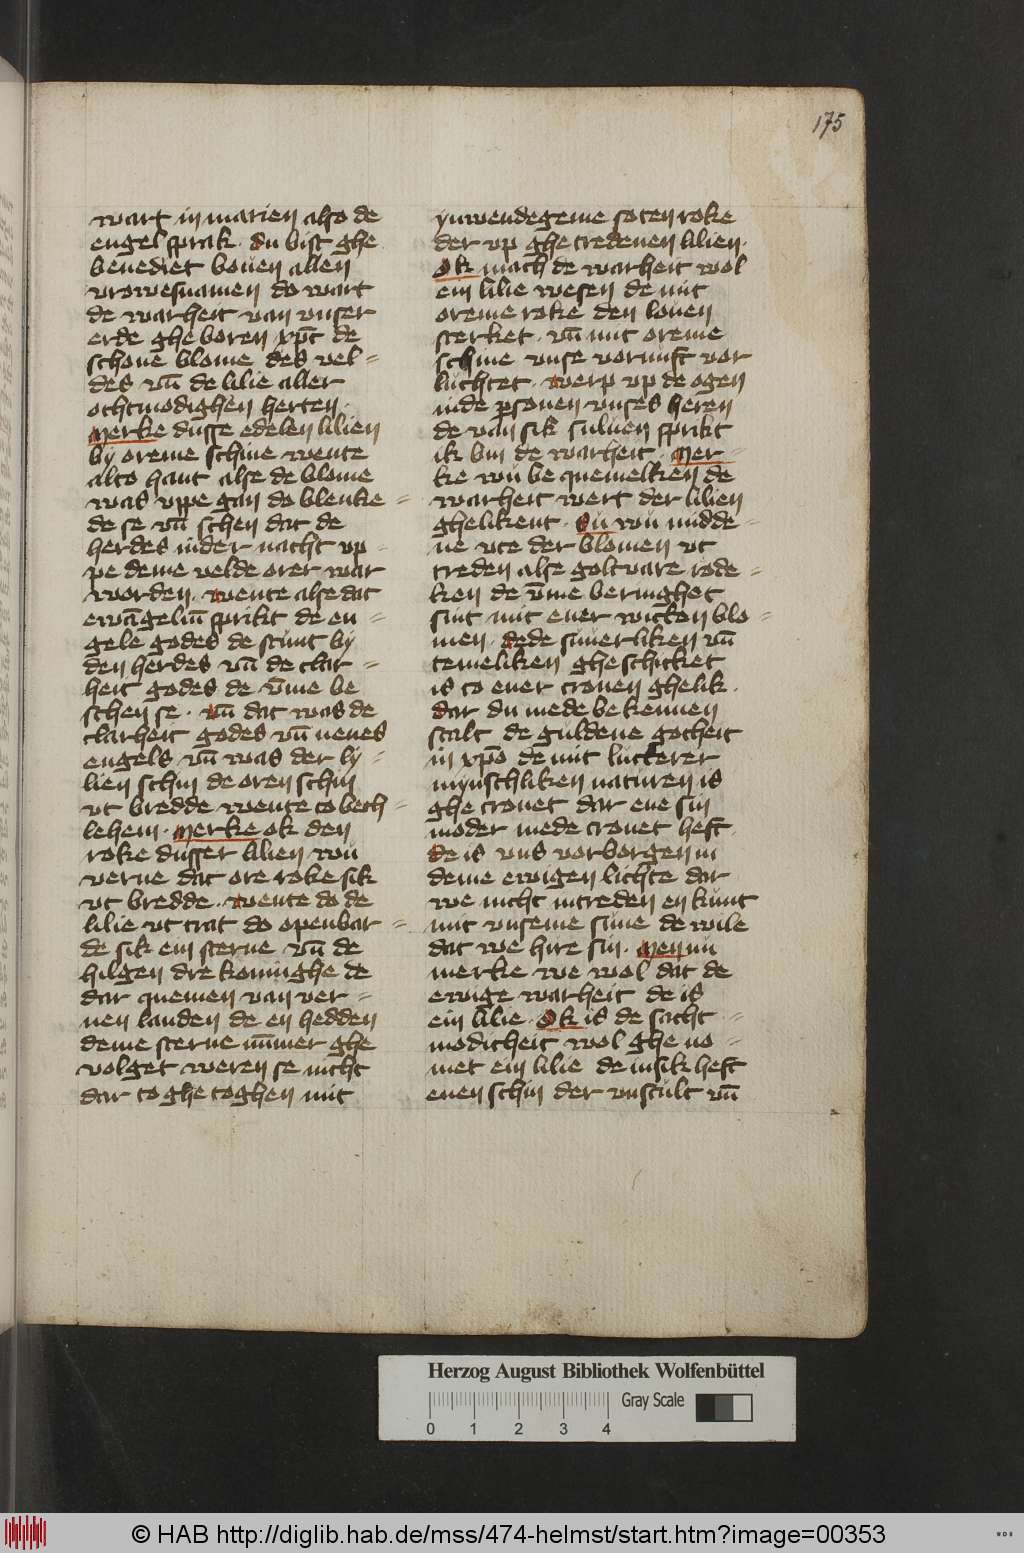 175
wart in marien also de
engel sprak · du bist ghe
benediet bouen allen
vrowesnamen do wart
de warheit van vnser
erde ghe boren xp̄c de
schone blome des vel-
des vn̄ de lilie aller
ochtmodighen herten ·
Merke dusse edelen lilien
by oreme schine wente
alto hant alse de blome
was vppe gan do blenke-
de se vn̄ schen dat de
herdes inder nacht vp-
pe deme velde orer war
worden · wente alse dat
ewāgeliū sprikt de en-
gele godes de stunt by
den herdes vn̄ de clar-
heit godes de v̄me be
schen se · vn̄ dat was de
clarheit godes vn̄ nenes
engels vn̄ was der ly-
lien schin de oren schin
vt bredde wente to beth-
lehem · Merke ok den
roke dusser lilien wu
verne dat ore roke sik
vt bredde · wente do de
lilie vt trat do openbar-
de sik ein sterne vn̄ de
hilgen dre koninghe de
dar quemen van ver-
nen landen de en hedden
deme sterne nūmer ghe
volget weren se nicht
dar to ghe toghen mit
ynwendegeme soten roke
der vp ghe tredenen lilien ·
Ok mach de warheit wol
ein lilie wesen de mit
oreme roke den louen
sterket · vn̄ mit oreme
schine vnse vornuft vor
luchtet · werp vp de ogen
inde p̱sonen vnses heren
de van sik suluen sprikt
ik bin de warheit · Mer-
ke wu be quemelken de
warheit wert der lilien
ghelikent · Su wu midde-
ne vte der blomen vt
treden alse goltvare rode-
ken de v̄me beringhet
sint mit ener witten blo-
men · dede sinerliken vn̄
temeliken ghe schicket
is to ener cronen ghelik ·
dar du mede bekennen
scalt de guldene gotheit
in xp̄o de mit luckerer
mynschliken naturen is
ghe cronet dar ene sin
moder mede cronet heft ·
de is vns vorborgen in
deme ewigen lichte dar
we nicht intreden en kunt
mit vnseme sinne de wile
dat we hire sin · Men nu
merke we wol dat de
ewige warheit de is
ein lilie · Ok is de sacht-
modicheit wol ghe no-
met ein lilie de insik heft
enen schin der vnscult vn̄
Herzog August Bibliothek Wolfenbüttel
0 1 2 3 4
Gray Scale
© HAB http://diglib.hab.de/mss/474-helmst/start.htm?image=00353